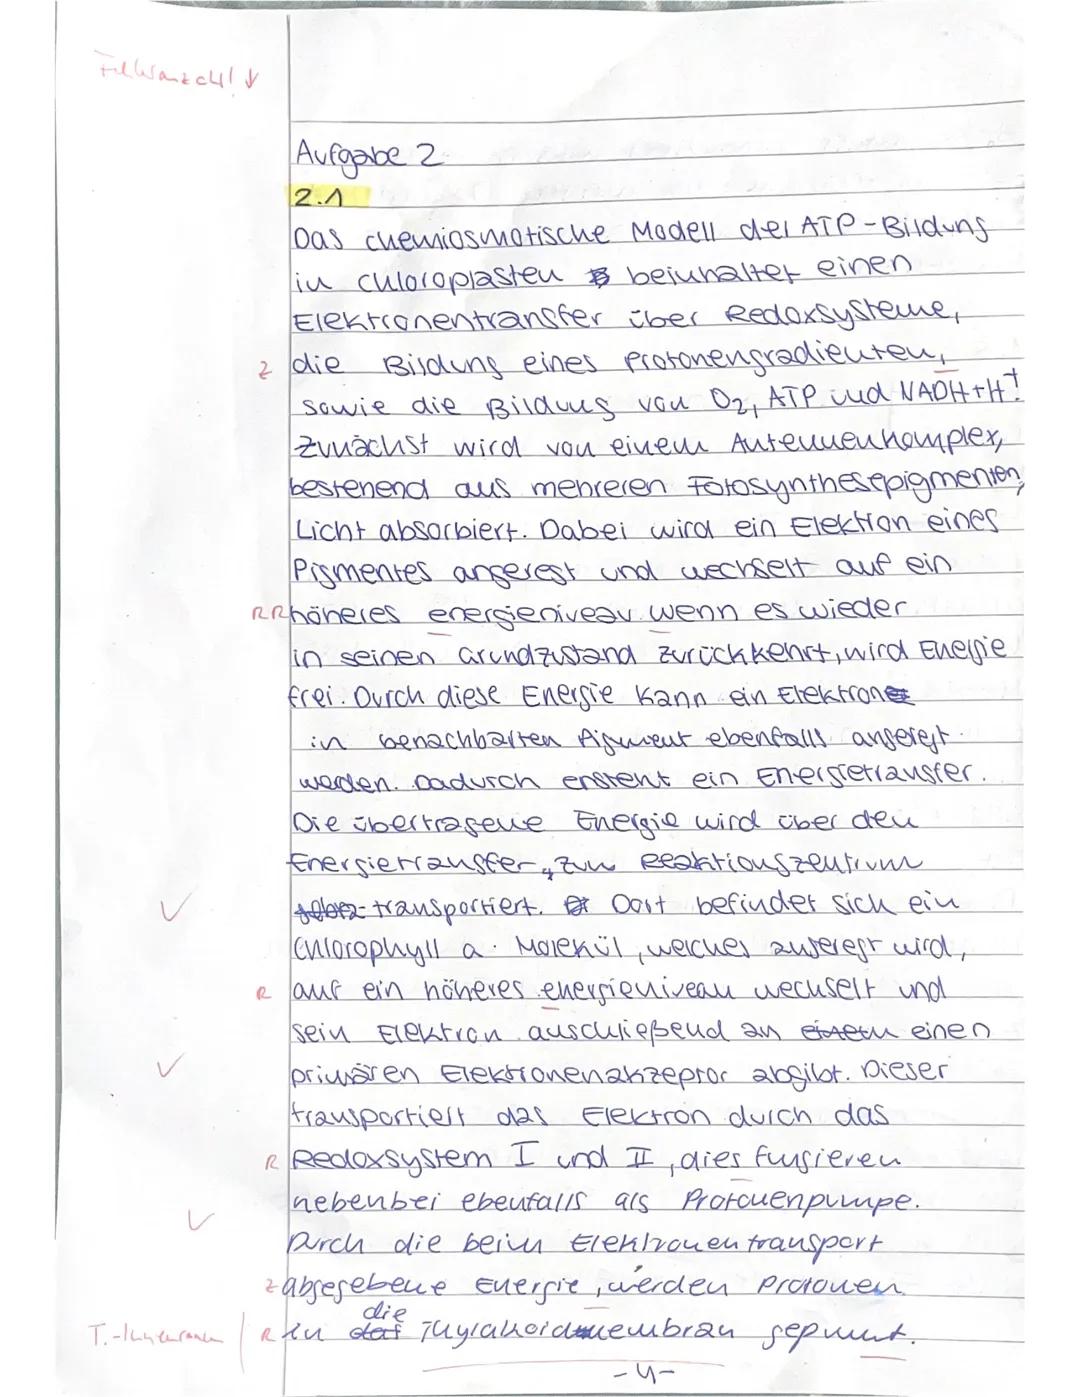 Aufgabe 2
2.1
Das chemiosmotische Modell der ATP-Bildung
in Chloroplasten beinhaltet einen
Elektronentransfer über Redoxsysteme,
Z die Bildung eines Protonengradienten,
sowie die Bildung von O2, ATP und NADH+H+.
Zunächst wird von einem Antennenkomplex,
bestehend aus mehreren Fotosynthesepigmenten,
Licht absorbiert. Dabei wird ein Elektron eines
Pigmentes angeregt und wechselt auf ein
RR höheres energieniveau. wenn es wieder
in seinen Grundzustand zurückkehrt, wird Energie
frei. Durch diese Energie kann ein Elektron
in benachbarten Pigment ebenfalls angeregt
werden. Dadurch ensteht ein Energietransfer.
Die übertragene Energie wird über den
Energietransfer, zum Reaktionszentrum
transportiert. Dort befindet sich ein
Chlorophyll a-Molekül, welches angeregt wird,
R auf ein höheres energieniveau wechselt und
sein Elektron anschließend an einen
primären Elektronenakzeptor abgibt. Dieser
transportiert das Elektron durch das
R Redoxsystem I und II, dies fungieren
nebenbei ebenfalls als Protonenpumpe.
Durch die beim Elektronentransport
Z abgegebene Energie, werden Protonen
T.-Innenraum R in die Thylakoidmembran gepumt.
-4-